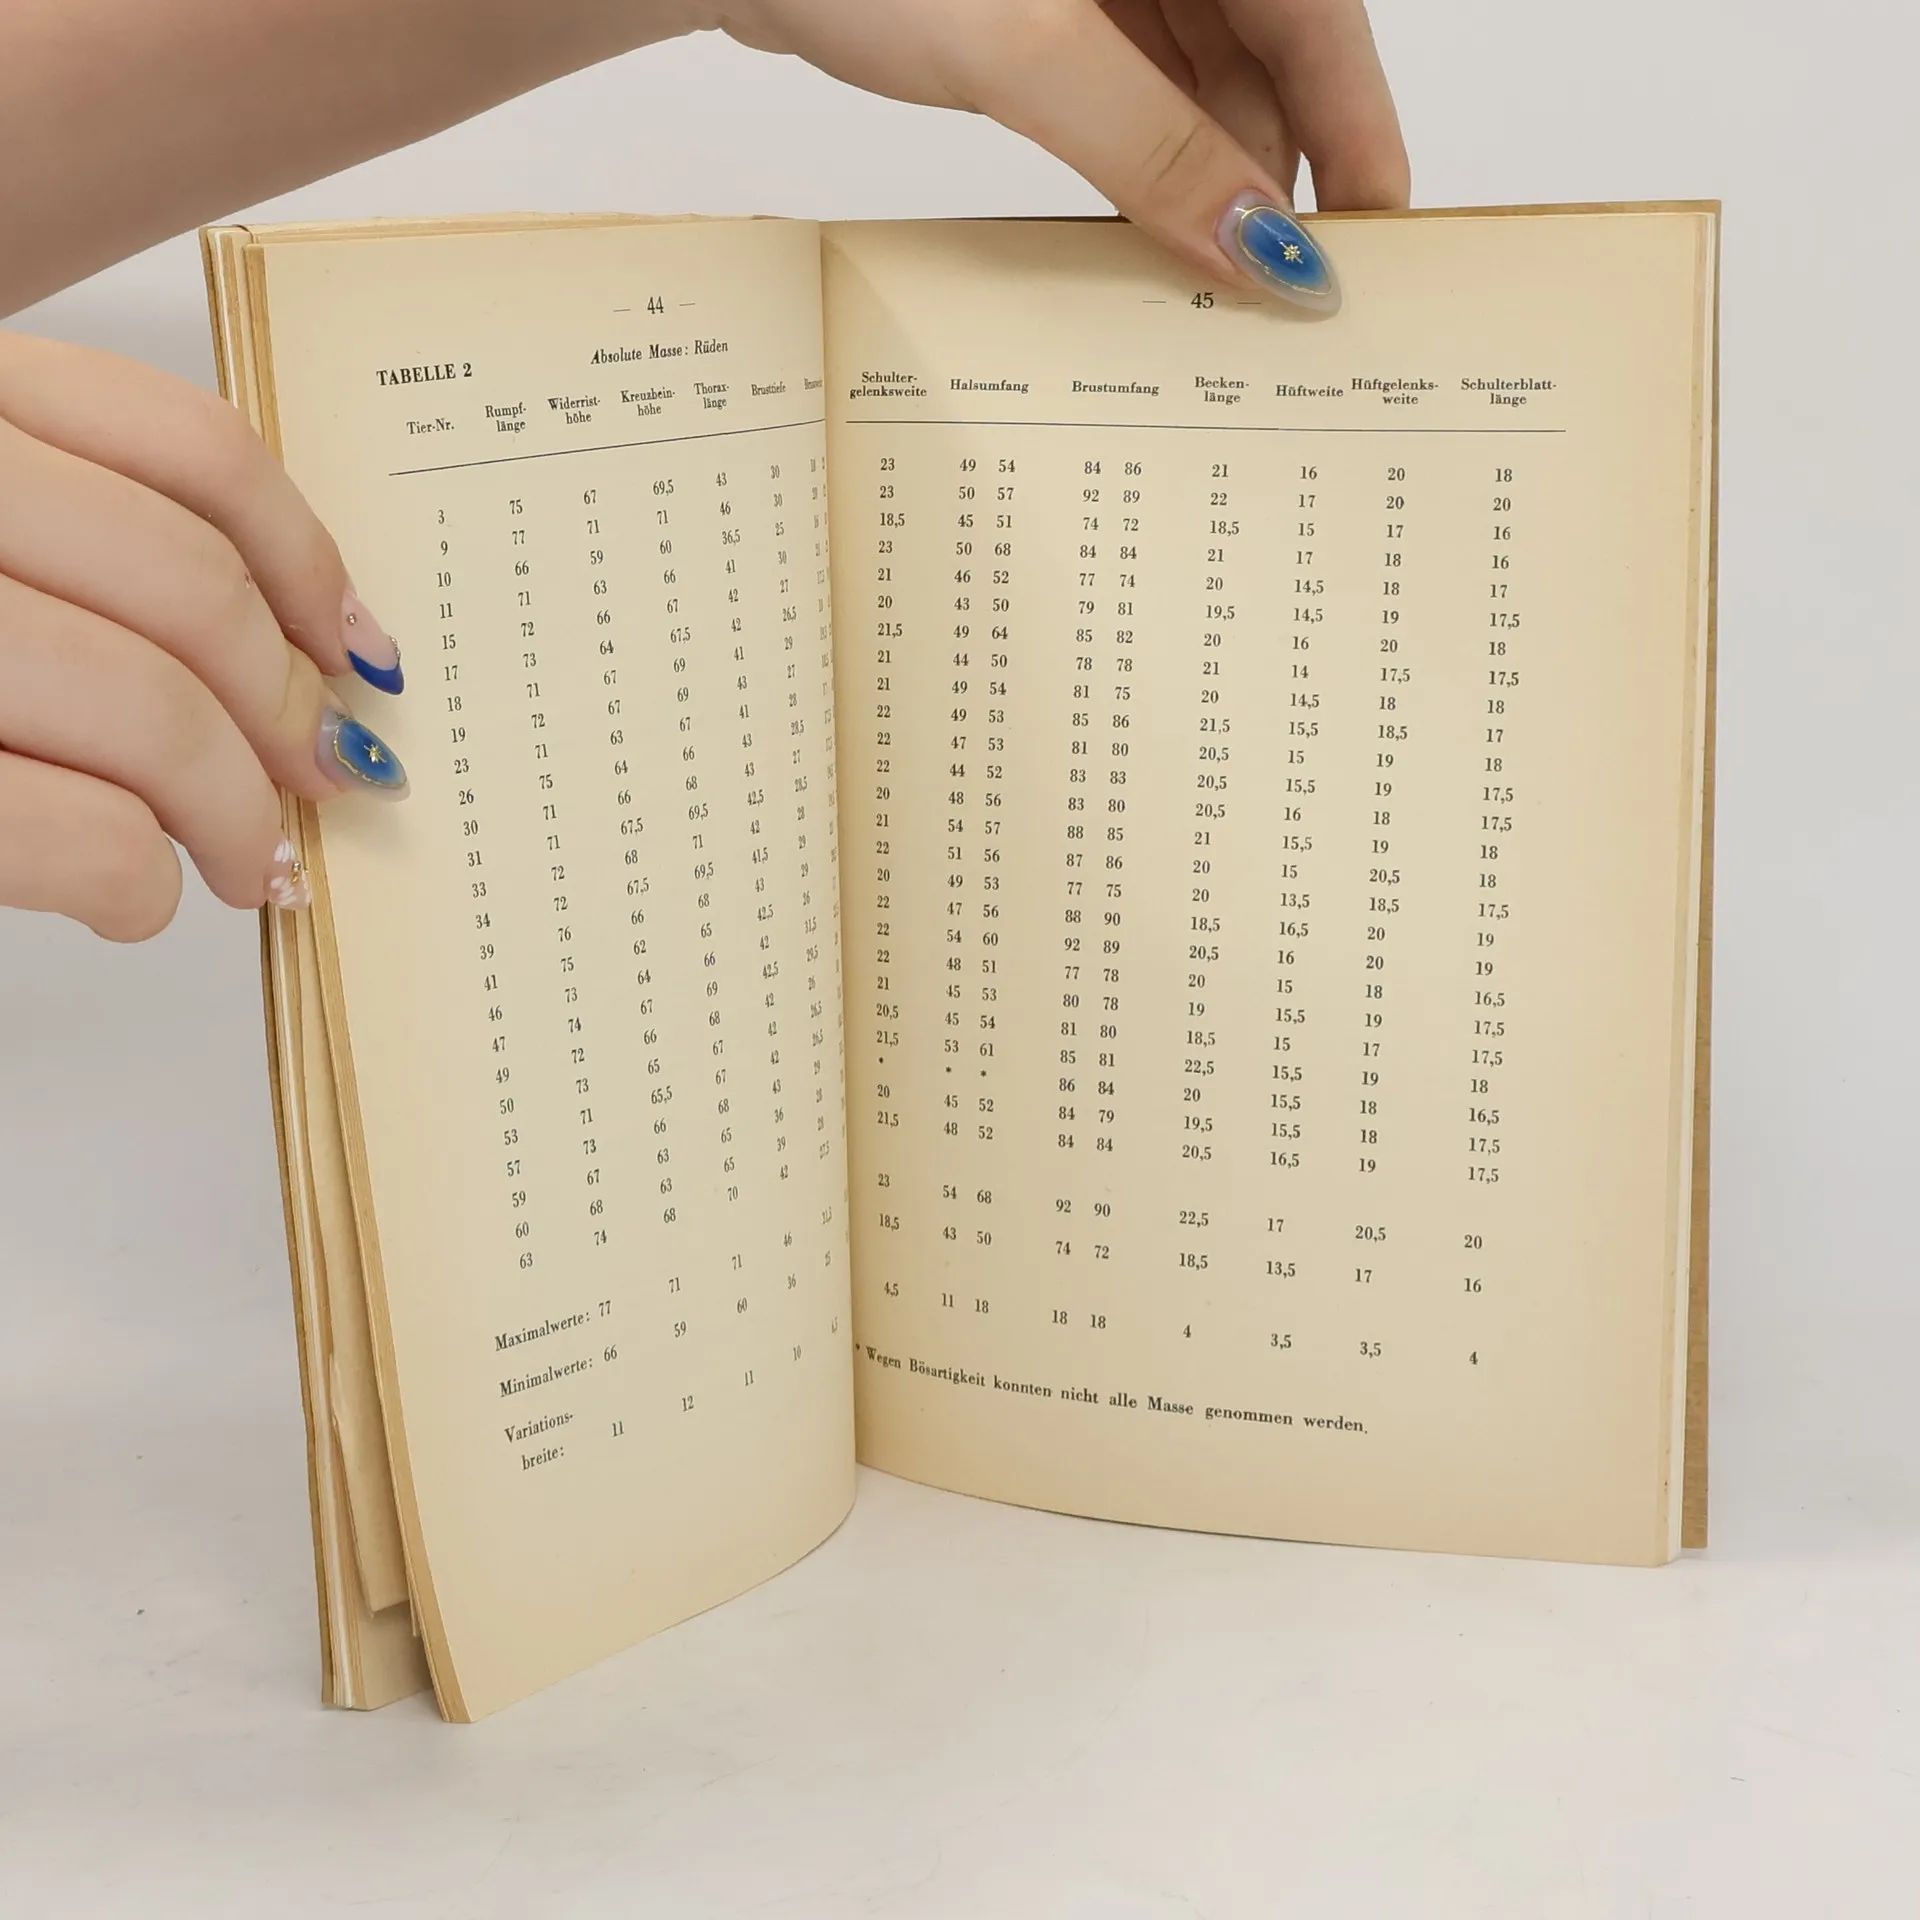 — 44 —
TABELLE 2 Absolute Masse: Rüden
Tier-Nr. Rumpf- Widerrist- Kreuzbein- Thorax- Brusttiefe
länge höhe höhe länge
3 75 67 69,5 43 30
9 77 71 71 46 30
10 66 59 60 36,5 25
11 71 63 66 41 30
15 72 66 67 42 27
17 73 64 67,5 42 26,5
18 71 67 69 41 29
19 72 67 69 43 27
23 71 63 67 41 28
26 75 64 66 43 28,5
30 71 66 68 43 27
31 71 67,5 69,5 42,5 28,5
33 72 68 71 42 28
34 72 67,5 69,5 41,5 29
39 76 66 68 43 29
41 75 62 65 42,5 26
46 73 64 66 42 31,5
47 74 67 69 42,5 29,5
49 72 66 68 42 26
50 73 65 67 42 26,5
53 71 65,5 67 42 26,5
57 73 66 68 43 29
59 67 63 65 36 28
60 68 63 65 39 28
63 74 68 70 42 27,5
Maximalwerte: 77 71 71 46 31,5
Minimalwerte: 66 59 60 36 25
Variations-
breite: 11 12 11 10 6,5
— 45 —
Schulter- Halsumfang Brustumfang Becken- Hüftweite Hüftgelenks- Schulterblatt-
gelenksweite länge weite länge
23 49 54 84 86 21 16 20 18
23 50 57 92 89 22 17 20 20
18,5 45 51 74 72 18,5 15 17 16
23 50 68 84 84 21 17 18 16
21 46 52 77 74 20 14,5 18 17
20 43 50 79 81 19,5 14,5 19 17,5
21,5 49 64 85 82 20 16 20 18
21 44 50 78 78 21 14 17,5 17,5
21 49 54 81 75 20 14,5 18 18
22 49 53 85 86 21,5 15,5 18,5 17
22 47 53 81 80 20,5 15 19 18
22 44 52 83 83 20,5 15,5 19 17,5
20 48 56 83 80 20,5 16 18 17,5
21 54 57 88 85 21 15,5 19 18
22 51 56 87 86 20 15 20,5 18
20 49 53 77 75 20 13,5 18,5 17,5
22 47 56 88 90 18,5 16,5 20 19
22 54 60 92 89 20,5 16 20 19
22 48 51 77 78 20 15 18 16,5
21 45 53 80 78 19 15,5 19 17,5
20,5 45 54 81 80 18,5 15 17 17,5
21,5 53 61 85 81 22,5 15,5 19 18
* * * 86 84 20 15,5 18 16,5
20 45 52 84 79 19,5 15,5 18 17,5
21,5 48 52 84 84 20,5 16,5 19 17,5
23 54 68 92 90 22,5 17 20,5 20
18,5 43 50 74 72 18,5 13,5 17 16
4,5 11 18 18 18 4 3,5 3,5 4
* Wegen Bösartigkeit konnten nicht alle Masse genommen werden.